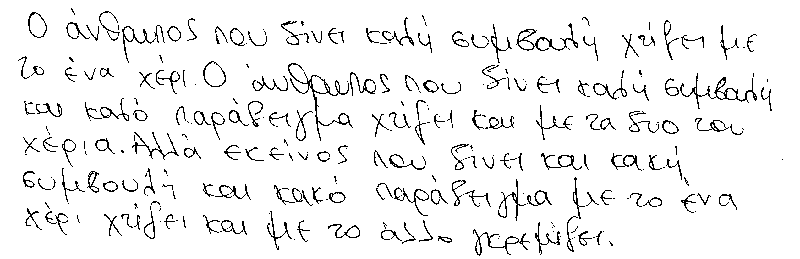 Ο άνθρωπος που δίνει καλή συμβουλή χτίζει με
το ένα χέρι. Ο άνθρωπος που δίνει καλή συμβουλή
και καλό παράδειγμα χτίζει και με τα δυο του
χέρια. Αλλά εκείνος που δίνει και κακή
συμβουλή και κακό παράδειγμα με το ένα
χέρι χτίζει και με το άλλο γκρεμίζει.